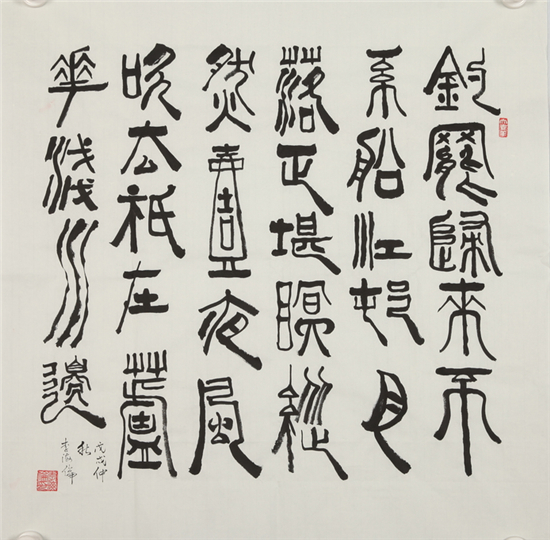 釣罷歸來不
系船江邨月
落正堪眠縱
然壹夜風
吹去祇在蘆
華淺水邊
戊戌仲
秋
李